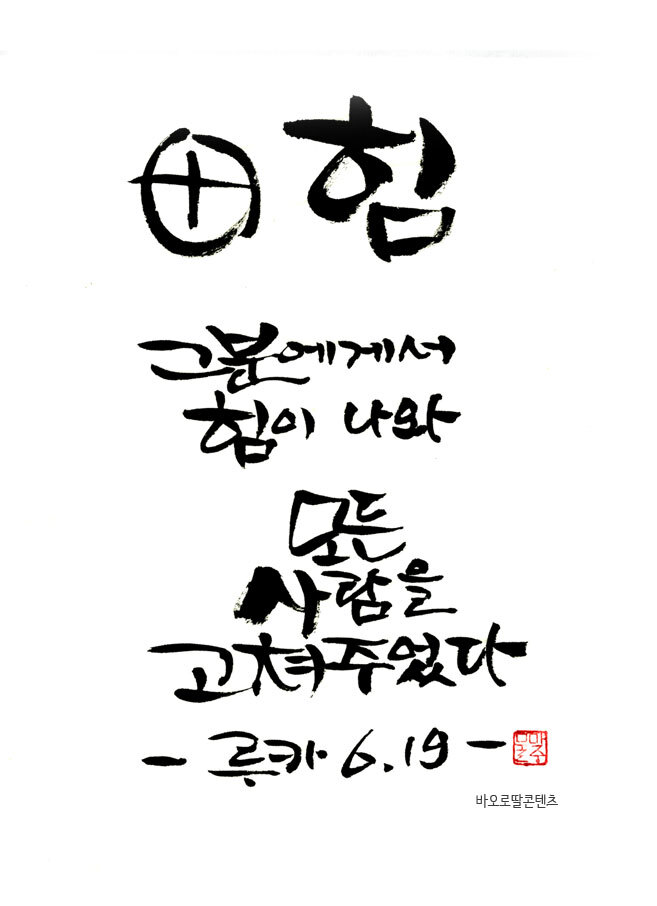 힘
그분에게서
힘이 나와
모든
사람을
고쳐주었다
- 루카 6.19 -
바오로딸콘텐츠